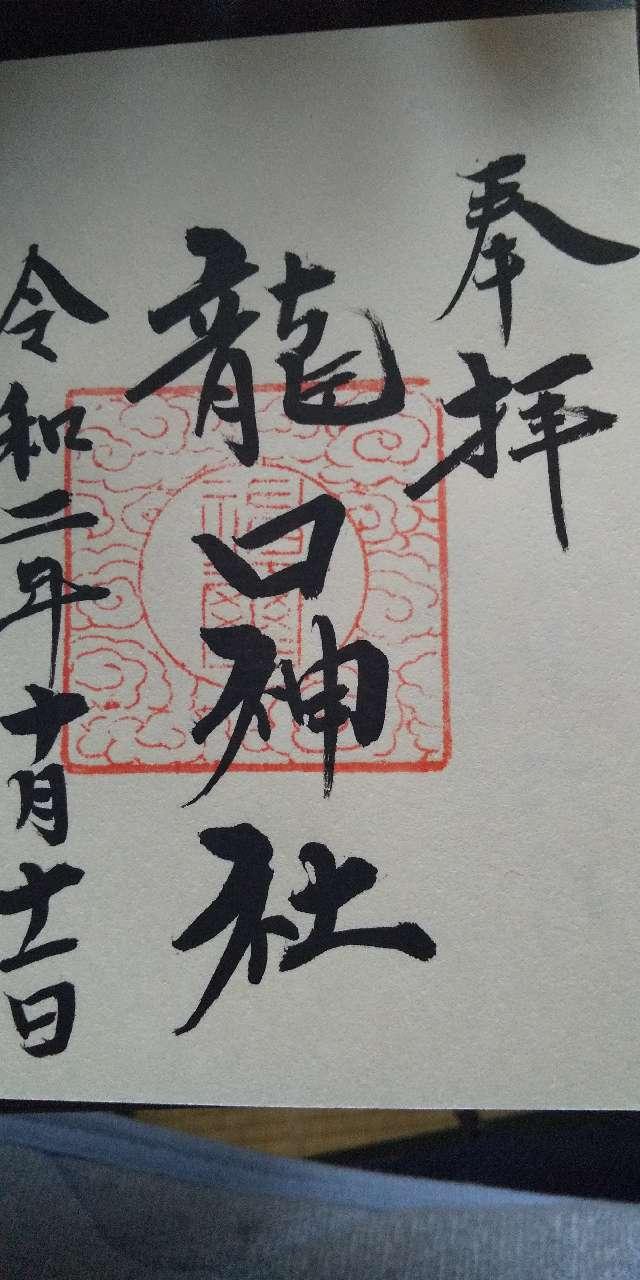 奉拝
龍口神社
令和二年十月十一日